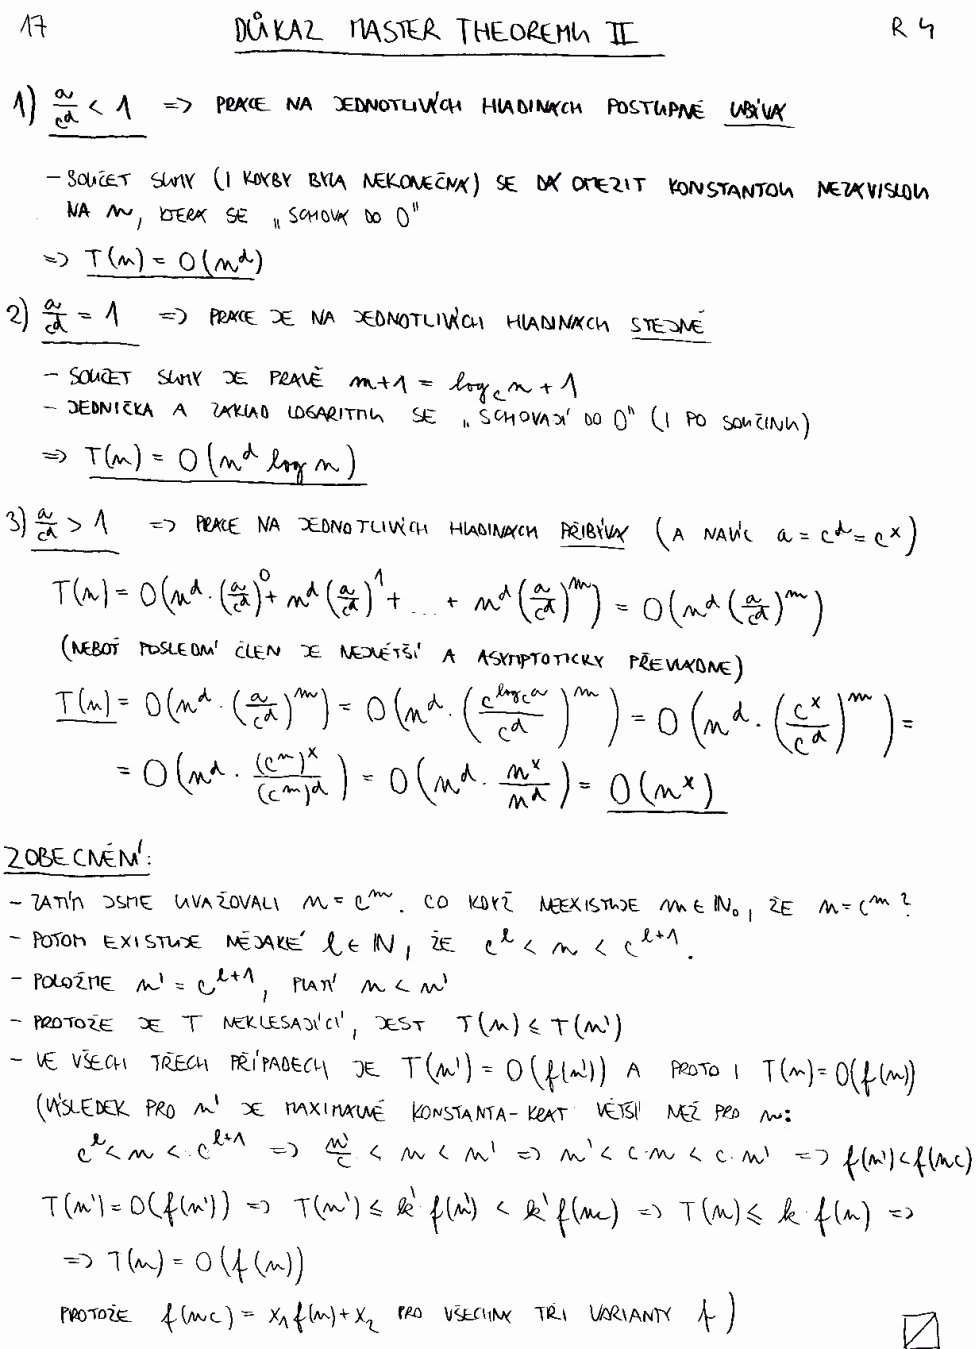 17 DŮKAZ MASTER THEOREMU II R4
1) a/c^d < 1 => PRÁCE NA JEDNOTLIVÝCH HLADINÁCH POSTUPNĚ UBÝVÁ
- SOUČET SUMY (I KDYBY BYLA NEKONEČNÁ) SE DÁ OMEZIT KONSTANTOU NEZÁVISLOU
NA n, KTERÁ SE „SCHOVÁ DO O"
=> T(n) = O(n^d)
2) a/c^d = 1 => PRÁCE JE NA JEDNOTLIVÝCH HLADINÁCH STEJNĚ
- SOUČET SUMY JE PRÁVĚ m+1 = log_c n + 1
- JEDNIČKA A ZÁKLAD LOGARITMU SE „SCHOVAJÍ DO O" (I PO SOUČINU)
=> T(n) = O(n^d log n)
3) a/c^d > 1 => PRÁCE NA JEDNOTLIVÝCH HLADINÁCH PŘIBÝVÁ (A NAVÍC a = c^d = c^x)
T(n) = O(n^d · (a/c^d)^0 + n^d (a/c^d)^1 + ... + n^d (a/c^d)^m) = O(n^d (a/c^d)^m)
(NEBOŤ POSLEDNÍ ČLEN JE NEJVĚTŠÍ A ASYMPTOTICKY PŘEVLÁDNE)
T(n) = O(n^d · (a/c^d)^m) = O(n^d · (c^(log_c a)/c^d)^m) = O(n^d · (c^x/c^d)^m) =
= O(n^d · (c^m)^x/(c^m)^d) = O(n^d · n^x/n^d) = O(n^x)
ZOBECNĚNÍ:
- ZATÍM JSME UVAŽOVALI n = c^m. CO KDYŽ NEEXISTUJE m ∈ ℕ₀, ŽE n = c^m?
- POTOM EXISTUJE NĚJAKÉ l ∈ ℕ, ŽE c^l < n < c^(l+1).
- POLOŽME n' = c^(l+1), PLATÍ n < n'
- PROTOŽE JE T NEKLESAJÍCÍ, JEST T(n) ≤ T(n')
- VE VŠECH TŘECH PŘÍPADECH JE T(n') = O(f(n')) A PROTO I T(n) = O(f(n))
(VÝSLEDEK PRO n' JE MAXIMÁLNĚ KONSTANTA-KRÁT VĚTŠÍ NEŽ PRO n:
c^l < n < c^(l+1) => n'/c < n < n' => n' < c·n < c·n' => f(n') < f(nc)
T(n') = O(f(n')) => T(n') ≤ k' f(n') < k' f(nc) => T(n) ≤ k · f(n) =>
=> T(n) = O(f(n))
PROTOŽE f(nc) = x₁ f(n) + x₂ PRO VŠECHNY TŘI VARIANTY f)